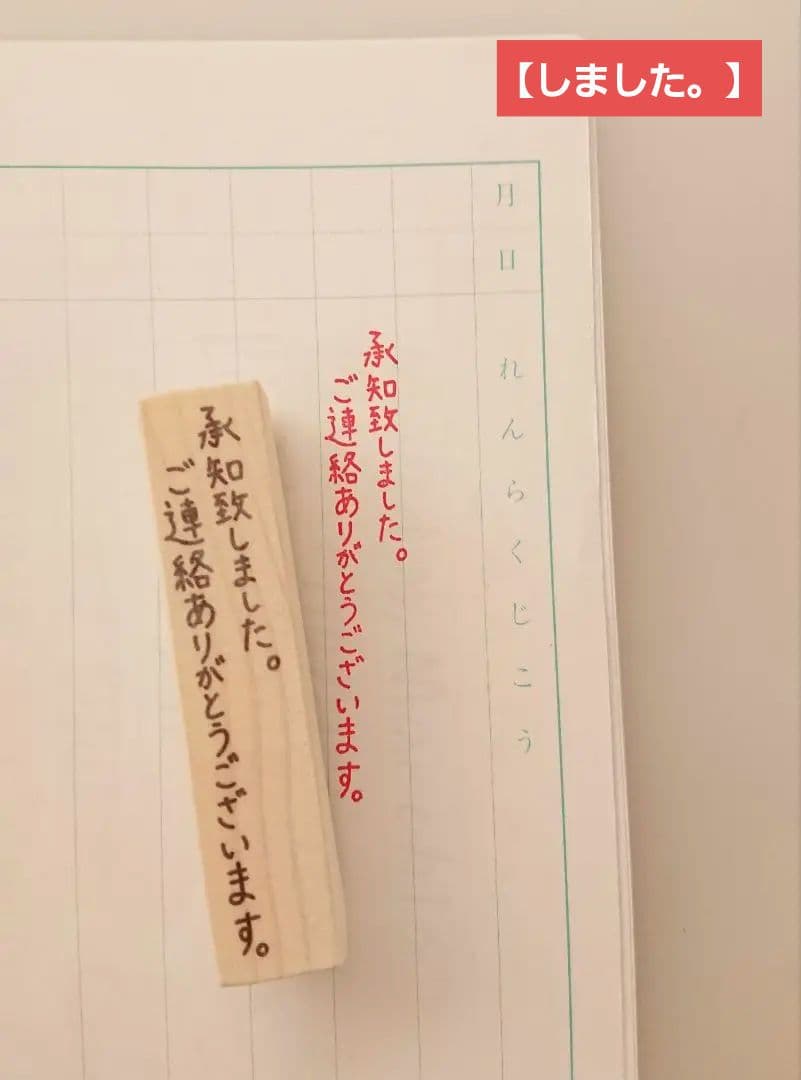 【しました。】
月
日
れんらくじこう
承知致しました。
ご連絡ありがとうございます。
承知致しました。
ご連絡ありがとうございます。